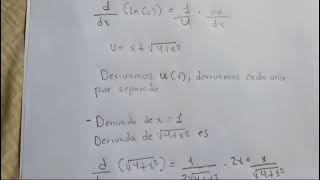 d/dx (ln(u)) = 1/u · du/dx
U = x + √4+x²
Derivamos u(x), derivamos cada uno
por separado
- Derivada de x = 1
Derivada de √4+x² es
d/ (√4+x²) = 1/2√4+x² · 2x = x/√4+x²